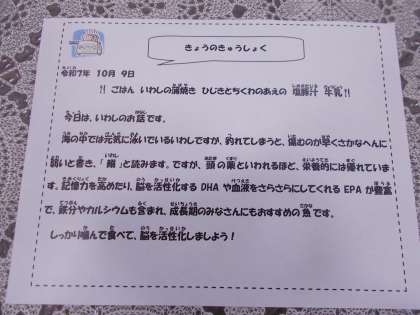 きょうのきゅうしょく
令和7年 10月 9日
!! ごはん いわしの蒲焼き ひじきとちくわのあえの 塩豚汁 牛乳 !!
今日は、いわしのお話です。
海の中では元気に泳いでいるいわしですが、釣れてしまうと、傷むのが早くさかなへんに
弱いと書き、「鰯」と読みます。ですが、頭の薬といわれるほど、栄養的には優れていま
す。記憶力を高めたり、脳を活性化するDHAや血液をさらさらにしてくれるEPAが豊富
で、鉄分やカルシウムも含まれ、成長期のみなさんにもおすすめの魚です。
しっかり噛んで食べて、脳を活性化しましよう！